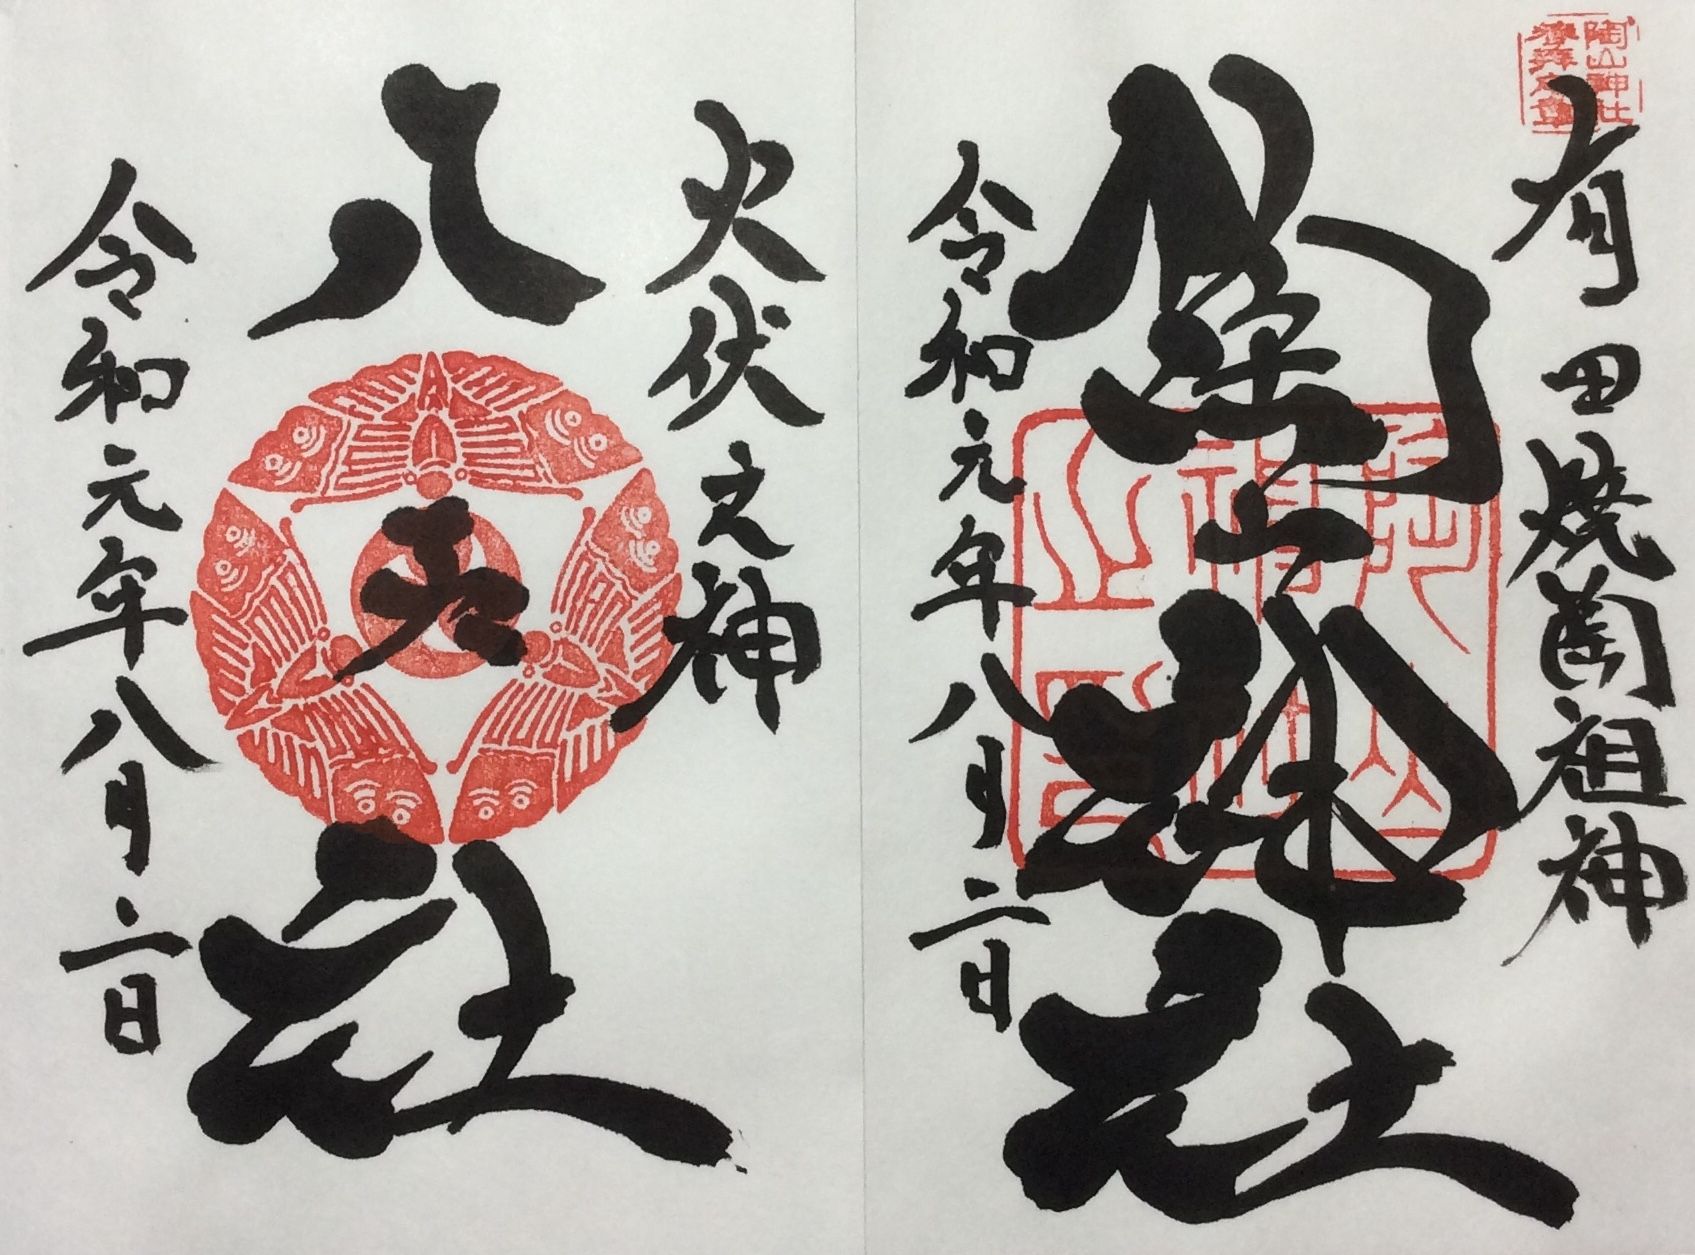 陶山神社
有田焼陶祖神
陶山神社
陶山
神社
之印
令和元年八月二日
火伏之神
八天社
令和元年八月二日